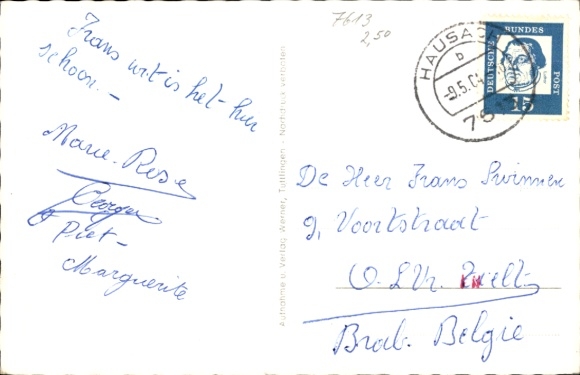 7613
2,50
Frans wat is het hier
schoon. -
Marie-Rose
Piet -
Marguerite
Aufnahme u. Verlag Werner, Tuttlingen - Nachdruck verboten
HAUSAC
b
-9.5.64
75
DEUTSCHE BUNDES POST
15
De Heer Frans Swinnen
9, Voortstraat
O. L. Vr. Tielt
Brab. Belgie